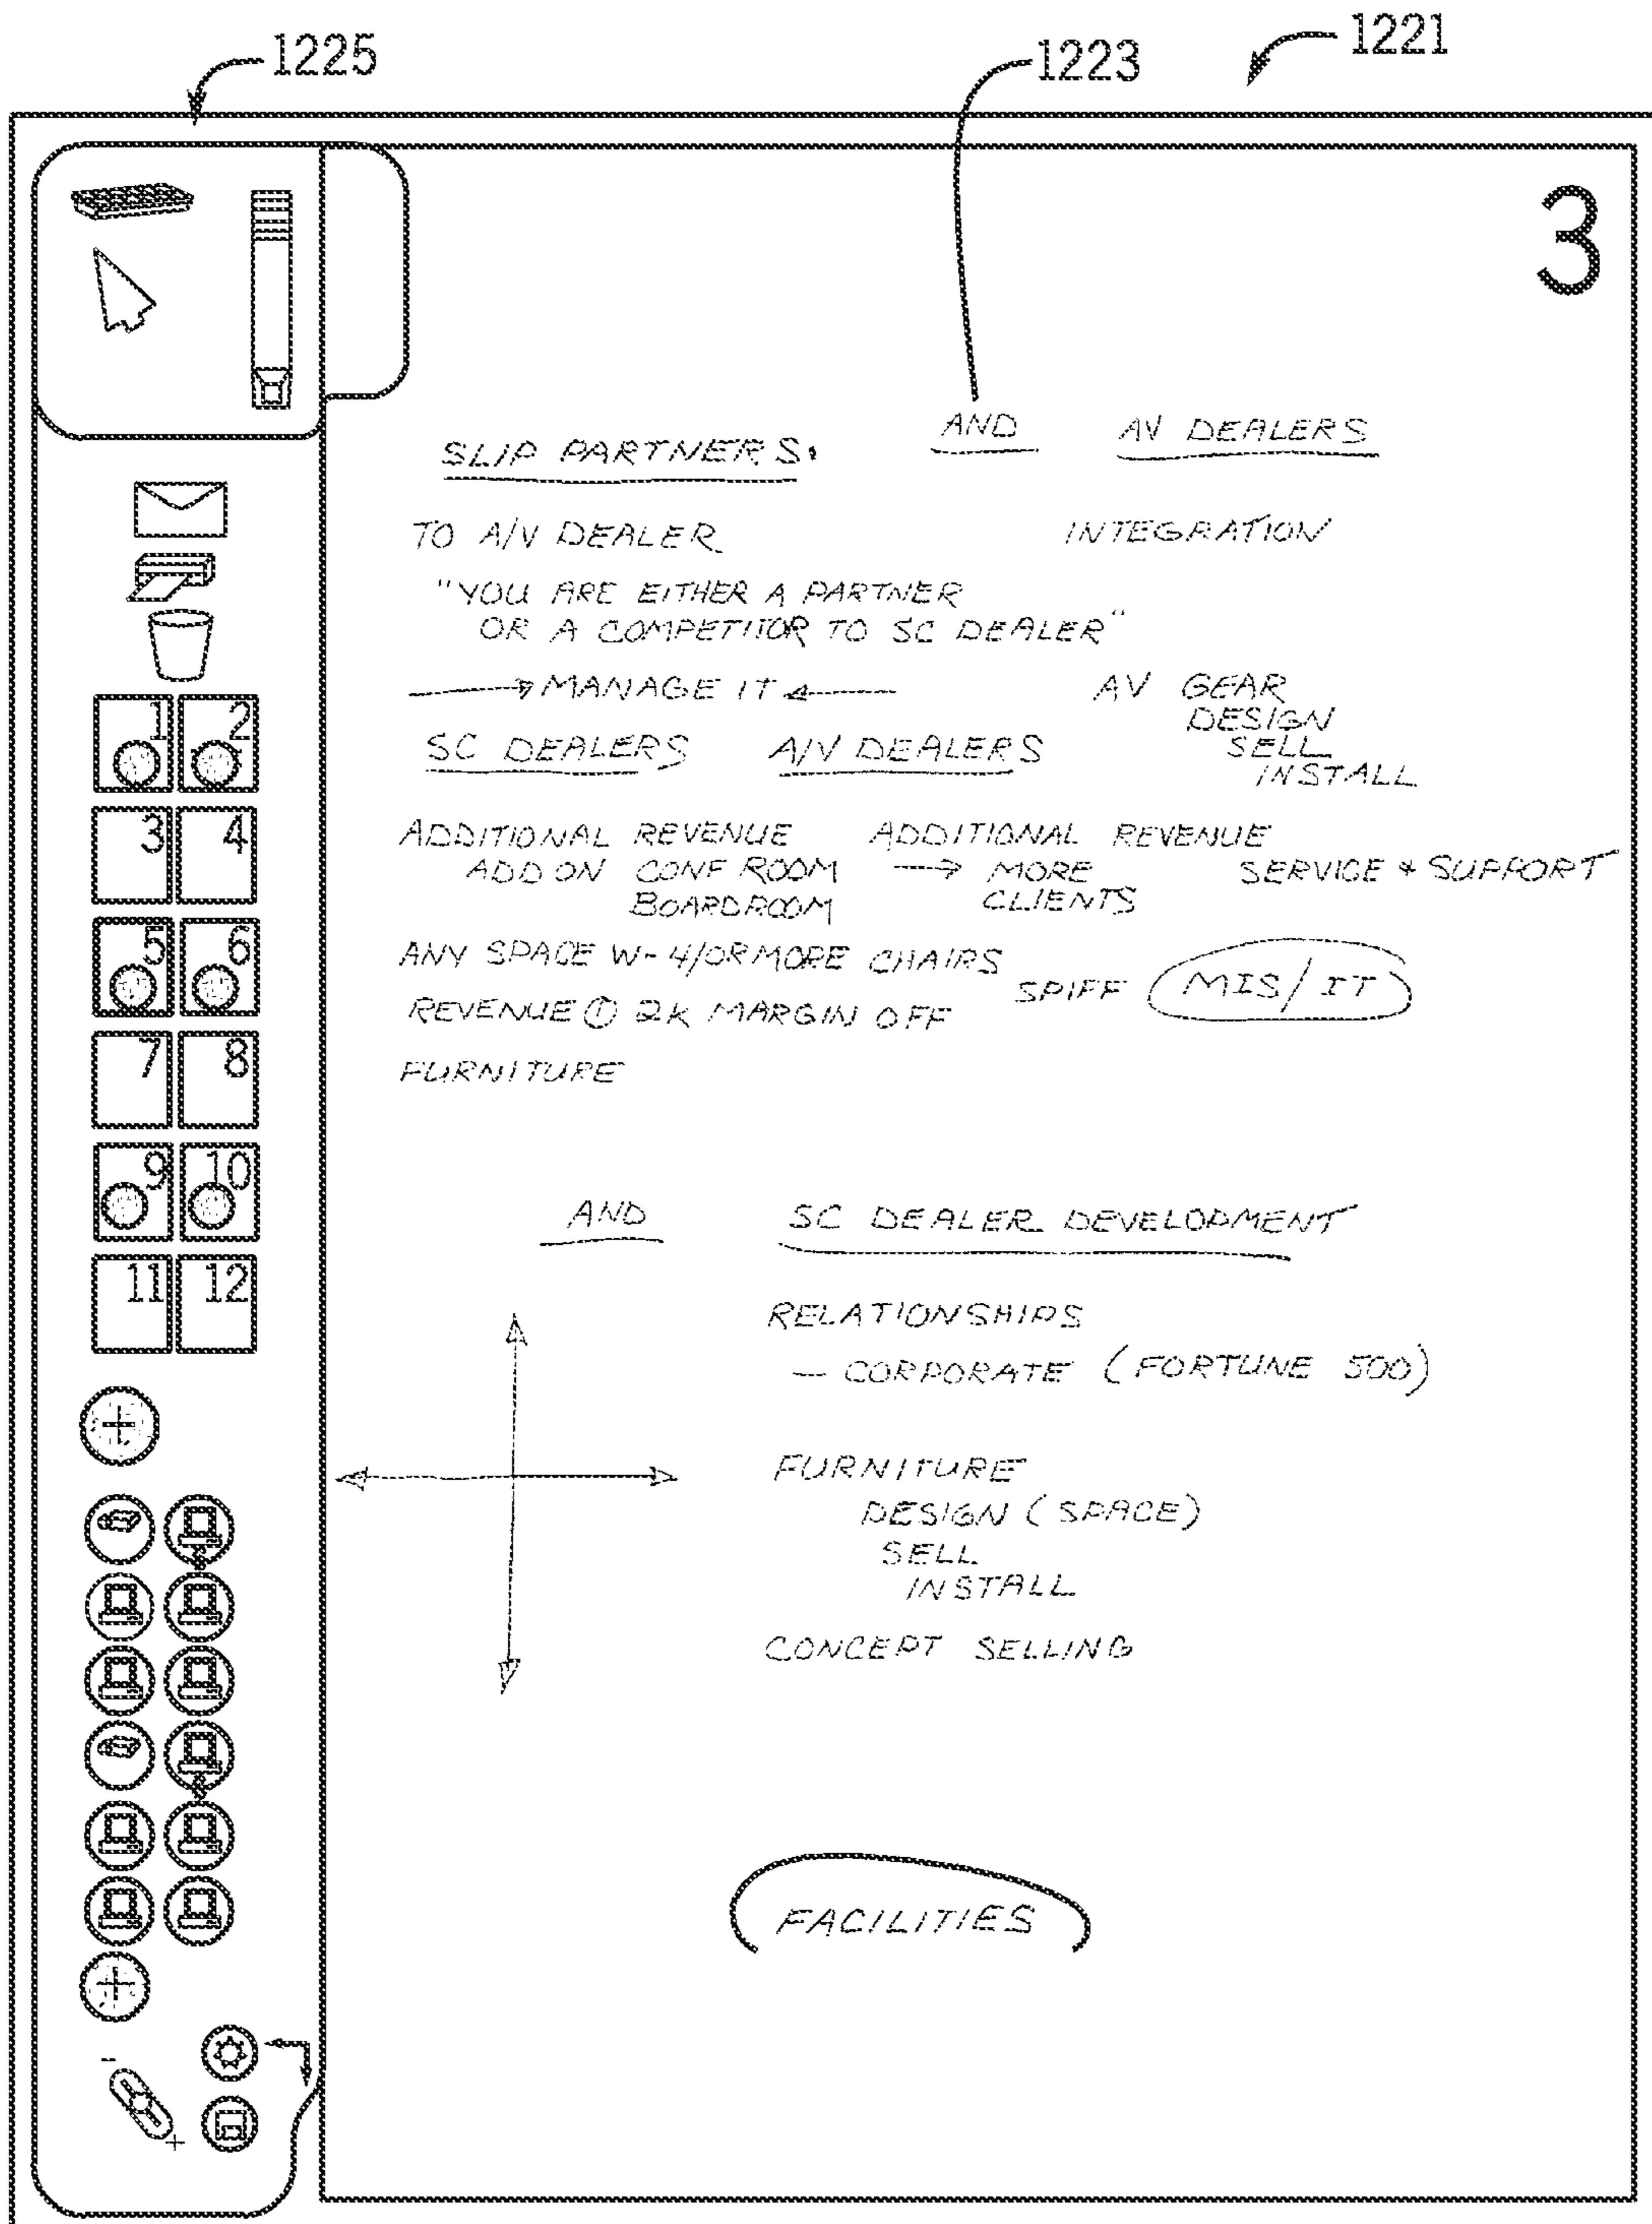 1225
1223
1221
3
SLIP PARTNERS: AND AV DEALERS
TO A/V DEALER INTEGRATION
"YOU ARE EITHER A PARTNER
OR A COMPETITOR TO SC DEALER"
MANAGE IT
AV GEAR
DESIGN
SELL
INSTALL
SC DEALERS A/V DEALERS
ADDITIONAL REVENUE ADDITIONAL REVENUE
ADD ON CONF ROOM → MORE SERVICE + SUPPORT
BOARDROOM CLIENTS
ANY SPACE W- 4/OR MORE CHAIRS
SPIFF MIS/IT
REVENUE ① 2K MARGIN OFF
FURNITURE
AND SC DEALER DEVELOPMENT
RELATIONSHIPS
— CORPORATE (FORTUNE 500)
FURNITURE
DESIGN (SPACE)
SELL
INSTALL
CONCEPT SELLING
FACILITIES
1 2
3 4
5 6
7 8
9 10
11 12
- +